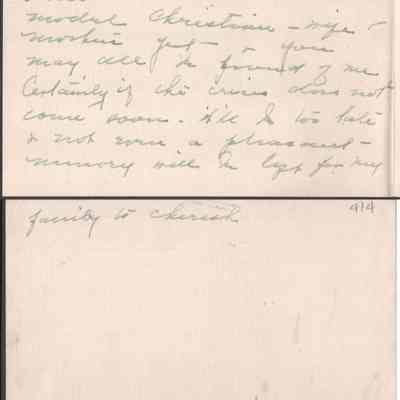 model Christian - wife &
mother yet - & you
may all be proud of me
Certainly if the crisis does not
come soon. It'll be too late
& not even a pleasant -
memory will be left for my
family to cherish
414